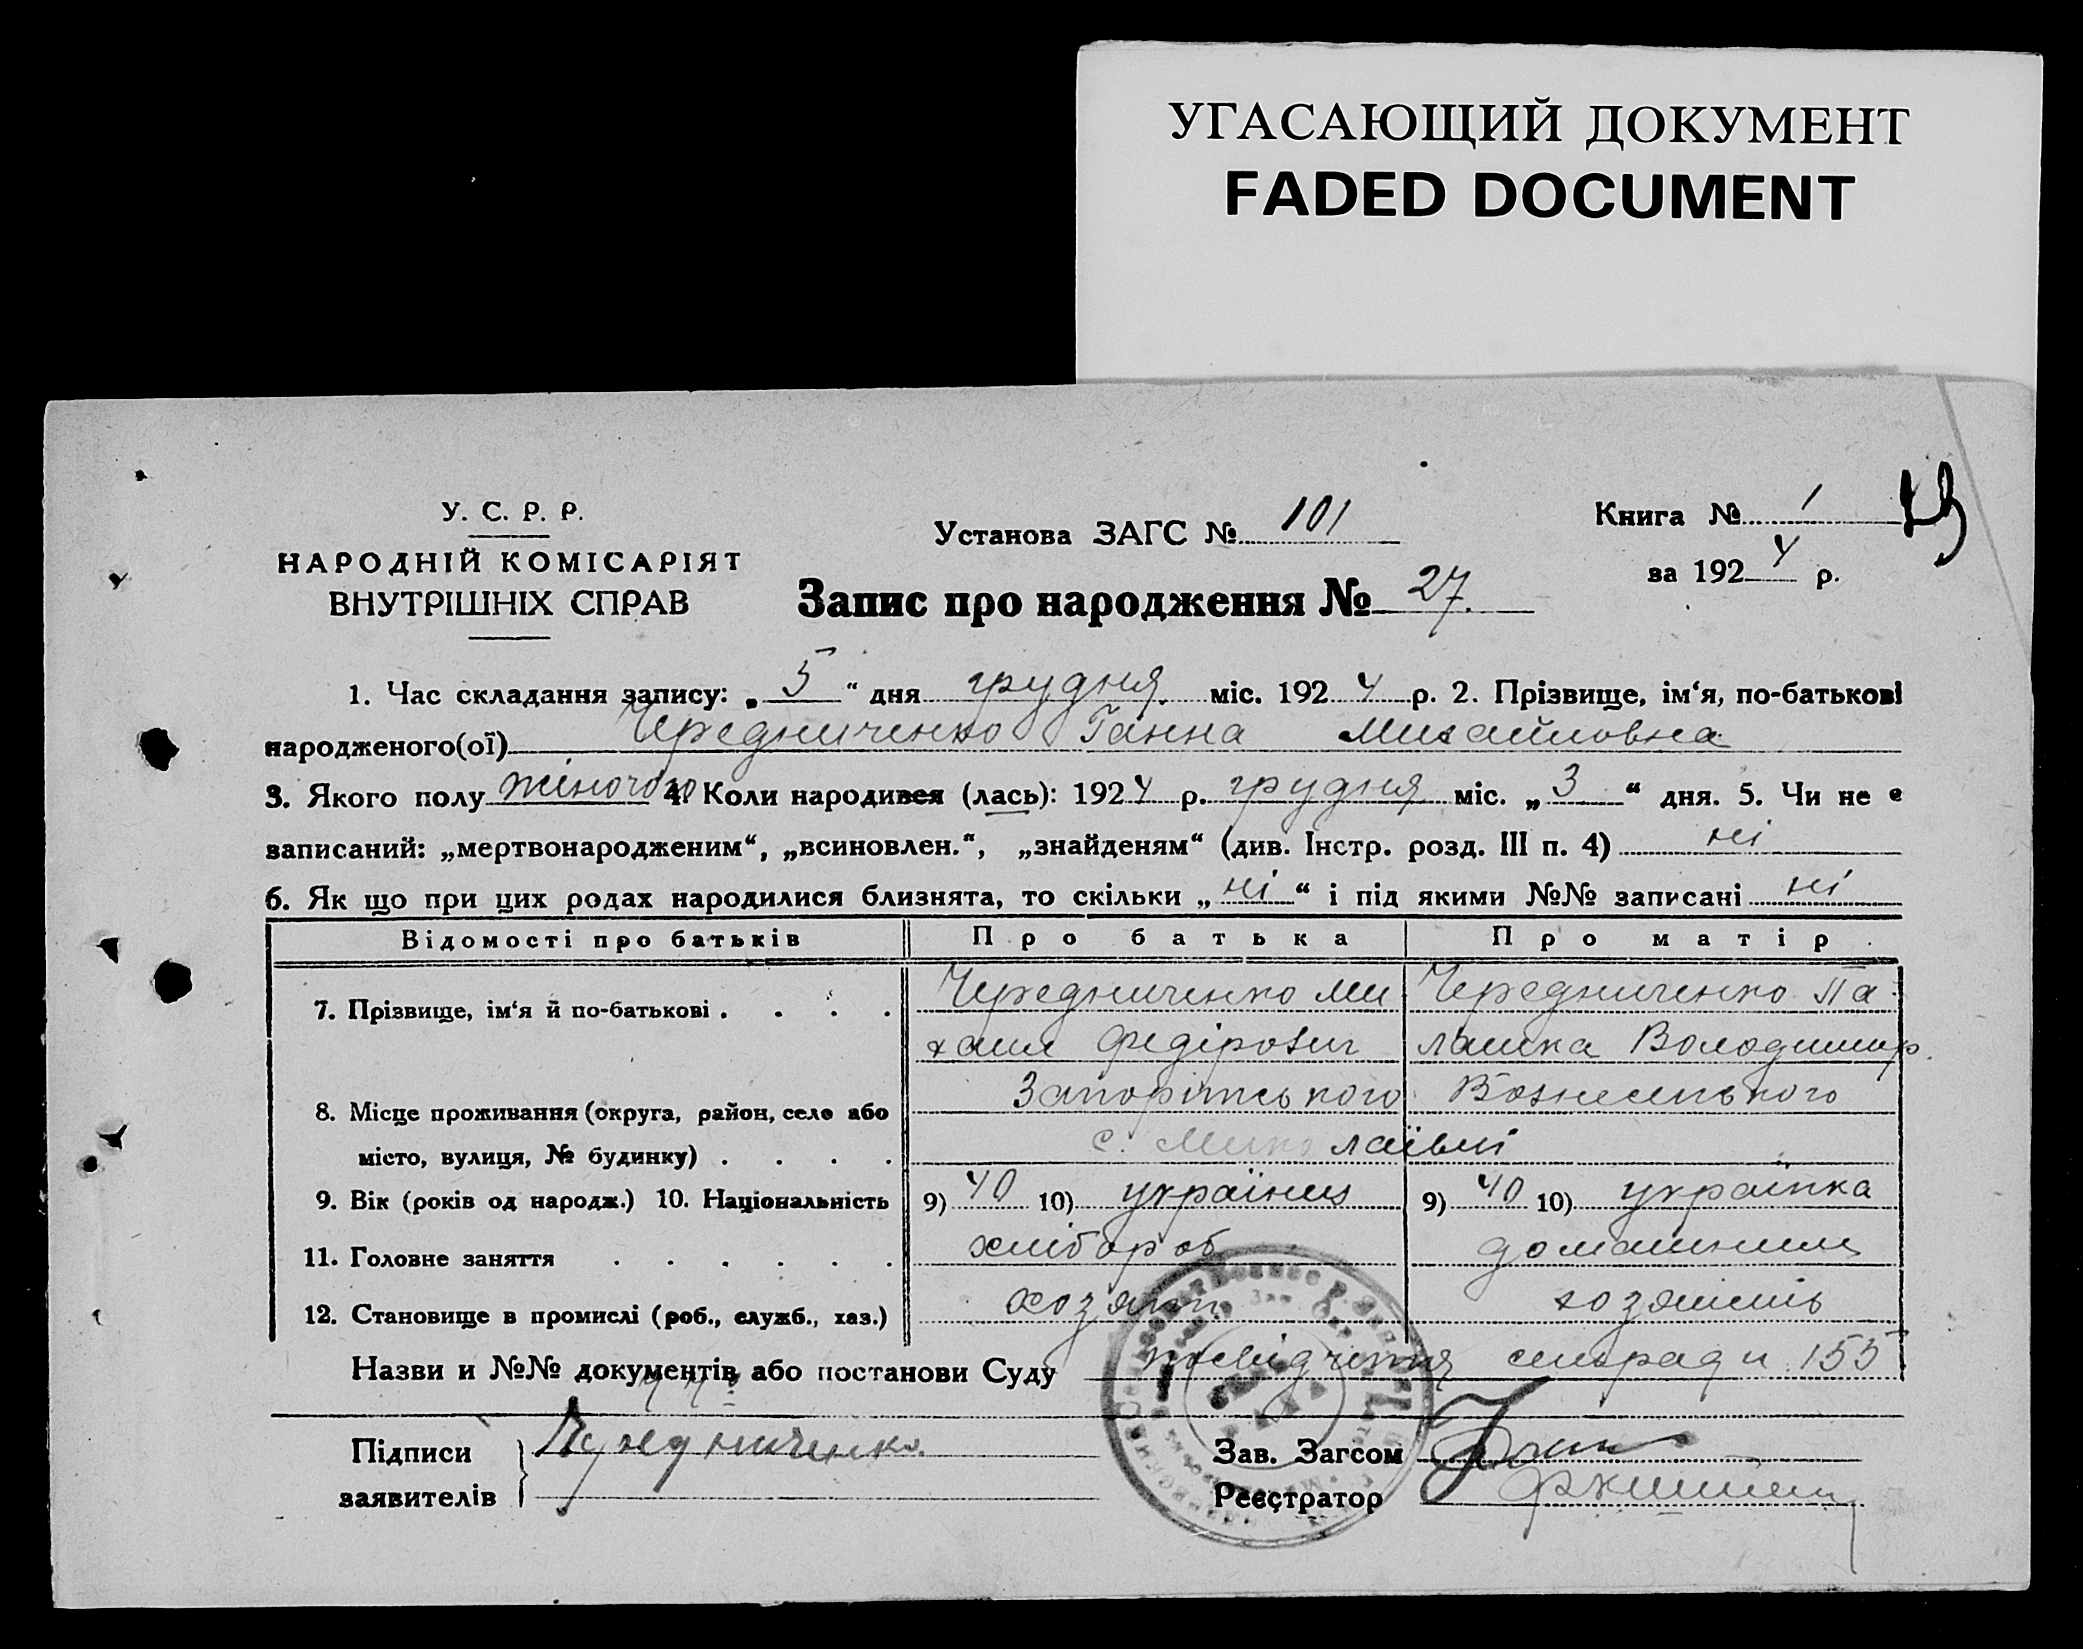 УГАСАЮЩИЙ ДОКУМЕНТ
FADED DOCUMENT
У. С. Р. Р.
НАРОДНІЙ КОМІСАРІЯТ
ВНУТРІШНІХ СПРАВ
Установа ЗАГС № 101
Книга № 1
за 1924 р.
Запис про народження № 27.
1. Час складання запису: „5“ дня грудня міс. 1924 р. 2. Прізвище, ім‘я, по-батькові
народженого(ої) Чередниченко Ганна Михайловна
3. Якого полу жіночого 4. Коли народився (лась): 1924 р. грудня міс. „3“ дня. 5. Чи не є
записаний: „мертвонародженим“, „всиновлен.“, „знайденям“ (див. Інстр. розд. III п. 4) ні
6. Як що при цих родах народилися близнята, то скільки „ні“ і під якими №№ записані ні
Відомості про батьків Про батька Про матір
7. Прізвище, ім‘я й по-батькові . . . . Чередниченко Ми Чередниченко Па
хаил Федірович лашка Володимир.
8. Місце проживання (округа, район, село або Запоріжського Вознесенського
місто, вулиця, № будинку) . . . . с. Миколаївці
9. Вік (років од народж.) 10. Національність 9) 40 10) українць 9) 40 10) українка
11. Головне заняття . . . . . . хлібороб домашнім
12. Становище в промислі (роб., служб., хаз.) хозяїн хозяїнть
Назви и №№ документів або постанови Суду посвідчення сельради 155
Підписи
заявителів
Чередниченко
Зав. Загсом
Реєстратор